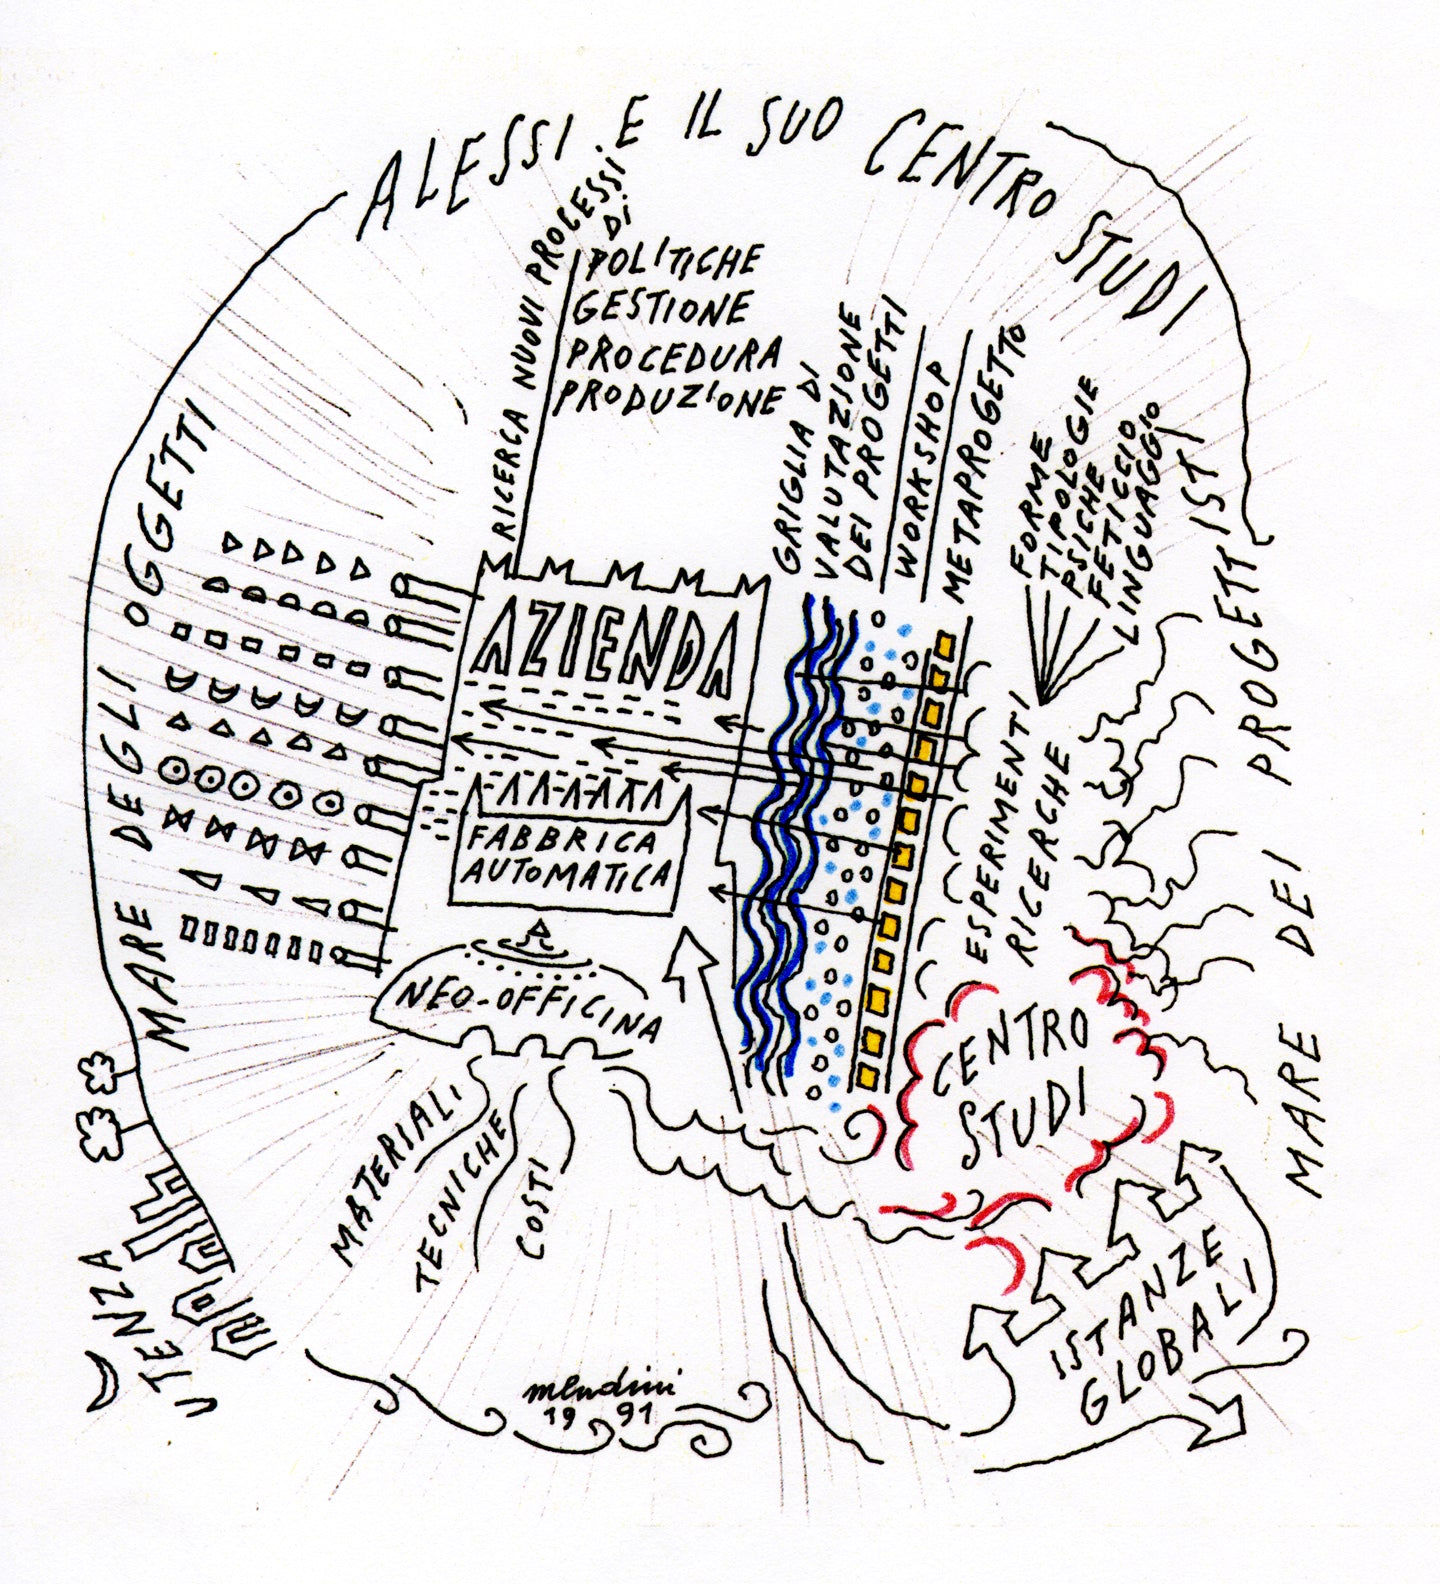 ALESSI . E IL SUO CENTRO STUDI
RICERCA NUOVI PROCESSI
DI
POLITICHE
GESTIONE
PROCEDURA
PRODUZIONE
GRIGLIA DI
VALUTAZIONE
DEI PROGETTI
WORKSHOP
METAPROGETTO
FORME
TIPOLOGIE
PSICHE
FETICCIO
LINGUAGGIO
ESPERIMENTI
RICERCHE
MARE DEI PROGETTISTI
MARE DEGLI OGGETTI
AZIENDA
FABBRICA
AUTOMATICA
NEO-OFFICINA
CENTRO
STUDI
MATERIALI
TECNICHE
COSTI
ISTANZE
GLOBALI
UTENZA
mendini
1991